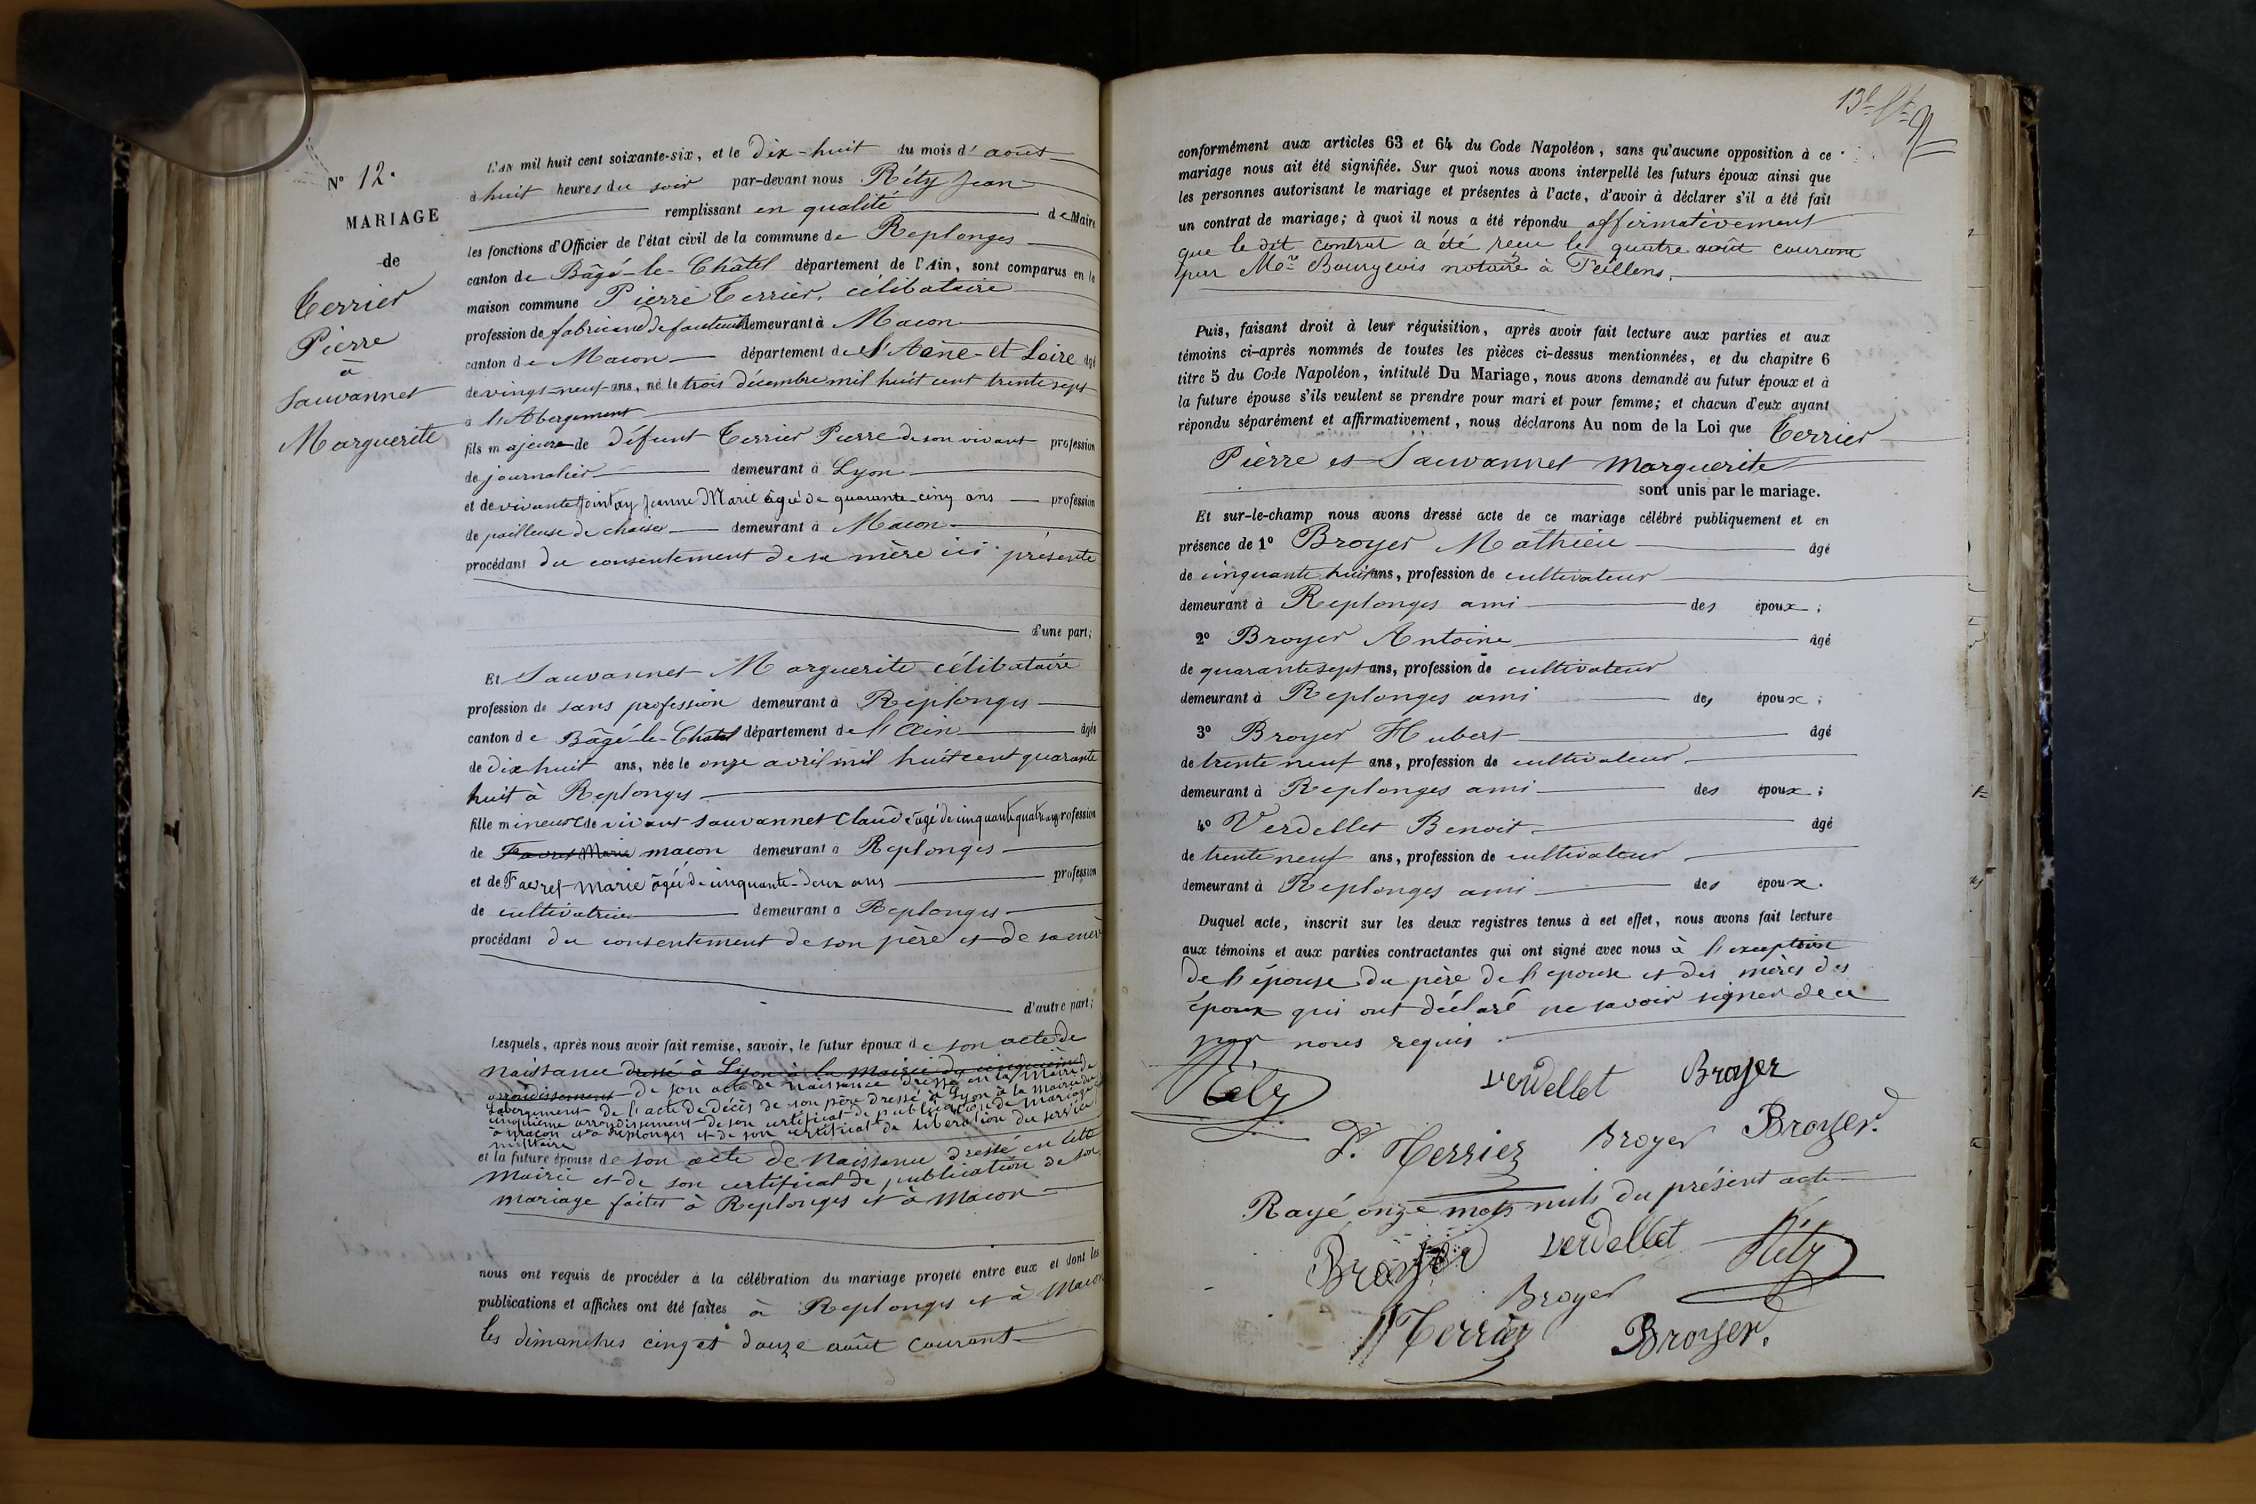 N° 12.
MARIAGE
de
Terrier
Pierre
à
Sauvannet
Marguerite
L'an mil huit cent soixante-six, et le dix-huit du mois d'aout
à huit heures du soir par-devant nous Réty Jean
remplissant en qualité de Maire
les fonctions d'Officier de l'état civil de la commune de Replonges
canton de Bâgé-le-Châtel département de l'Ain, sont comparus en la
maison commune Pierre Terrier, célibataire
profession de fabricand de fauteuil demeurant à Macon
canton de Macon département de S'Aône-et Loire âgé
de vingt-neuf ans, né le trois décembre mil huit cent trente sept
à l'Abergement
fils majeur de défunt Terrier Pierre de son vivant profession
de journalier demeurant à Lyon
et de vivante Jeanne Marie âgée de quarante-cinq ans profession
de pailleuse de chaise demeurant à Macon
procédant du consentement de sa mère ici présente
d'une part;
Et Sauvannet Marguerite célibataire
profession de sans profession demeurant à Replonges
canton de Bâgé-le-Châtel département de l'Ain âgée
de dix huit ans, née le onze avril mil huit cent quarante
huit à Replonges
fille mineure de vivant Sauvannet Claude âgé de cinquante quatre ans profession
de Favret Marie macon demeurant à Replonges
et de Favret Marie âgée de cinquante-deux ans profession
de cultivatrice demeurant à Replonges
procédant du consentement de son père et de sa mère
d'autre part;
Lesquels, après nous avoir fait remise, savoir, le futur époux de son acte de
naissance dressé à Lyon à la mairie du cinquième
arrondissement de son acte de naissance dressé en la mairie de
Labergement de l'acte de décès de son père dressé à Lyon à la mairie du
cinquième arrondissement de son certificat de publication de mariage
à macon et à Replonges et de son certificat de libération du service
militaire
et la future épouse de son acte de naissance dressé en cette
mairie et de son certificat de publication de son
mariage faites à Replonges et à Macon
nous ont requis de procéder à la célébration du mariage projeté entre eux et dont les
publications et affiches ont été faites à Replonges et à Macon
les dimanches cinq et douze août courant
conformément aux articles 63 et 64 du Code Napoléon, sans qu'aucune opposition à ce
mariage nous ait été signifiée. Sur quoi nous avons interpellé les futurs époux ainsi que
les personnes autorisant le mariage et présentes à l'acte, d'avoir à déclarer s'il a été fait
un contrat de mariage; à quoi il nous a été répondu affirmativement
que le dit contrat a été reçu le quatre août courant
par Me Bourgeois notaire à Feillens.
Puis, faisant droit à leur réquisition, après avoir fait lecture aux parties et aux
témoins ci-après nommés de toutes les pièces ci-dessus mentionnées, et du chapitre 6
titre 5 du Code Napoléon, intitulé Du Mariage, nous avons demandé au futur époux et à
la future épouse s'ils veulent se prendre pour mari et pour femme; et chacun d'eux ayant
répondu séparément et affirmativement, nous déclarons Au nom de la Loi que Terrier
Pierre et Sauvannet Marguerite
sont unis par le mariage.
Et sur-le-champ nous avons dressé acte de ce mariage célébré publiquement et en
présence de 1° Broyer Mathieu âgé
de cinquante huit ans, profession de cultivateur
demeurant à Replonges ami des époux;
2° Broyer Antoine âgé
de quarante sept ans, profession de cultivateur
demeurant à Replonges ami des époux;
3° Broyer Hubert âgé
de trente neuf ans, profession de cultivateur
demeurant à Replonges ami des époux;
4° Verdellet Benoit âgé
de trente neuf ans, profession de cultivateur
demeurant à Replonges ami des époux.
Duquel acte, inscrit sur les deux registres tenus à cet effet, nous avons fait lecture
aux témoins et aux parties contractantes qui ont signé avec nous à l'exception
de l'épouse du père de l'epouse et des mères des
époux qui ont déclaré ne savoir signer de ce
par nous requis.
Réty verdellet Broyer
P. Terrier Broyer Broyer.
Rayé onze mots nuls du présent acte
Broyer verdellet Réty
Broyer
P Terrier Broyer.